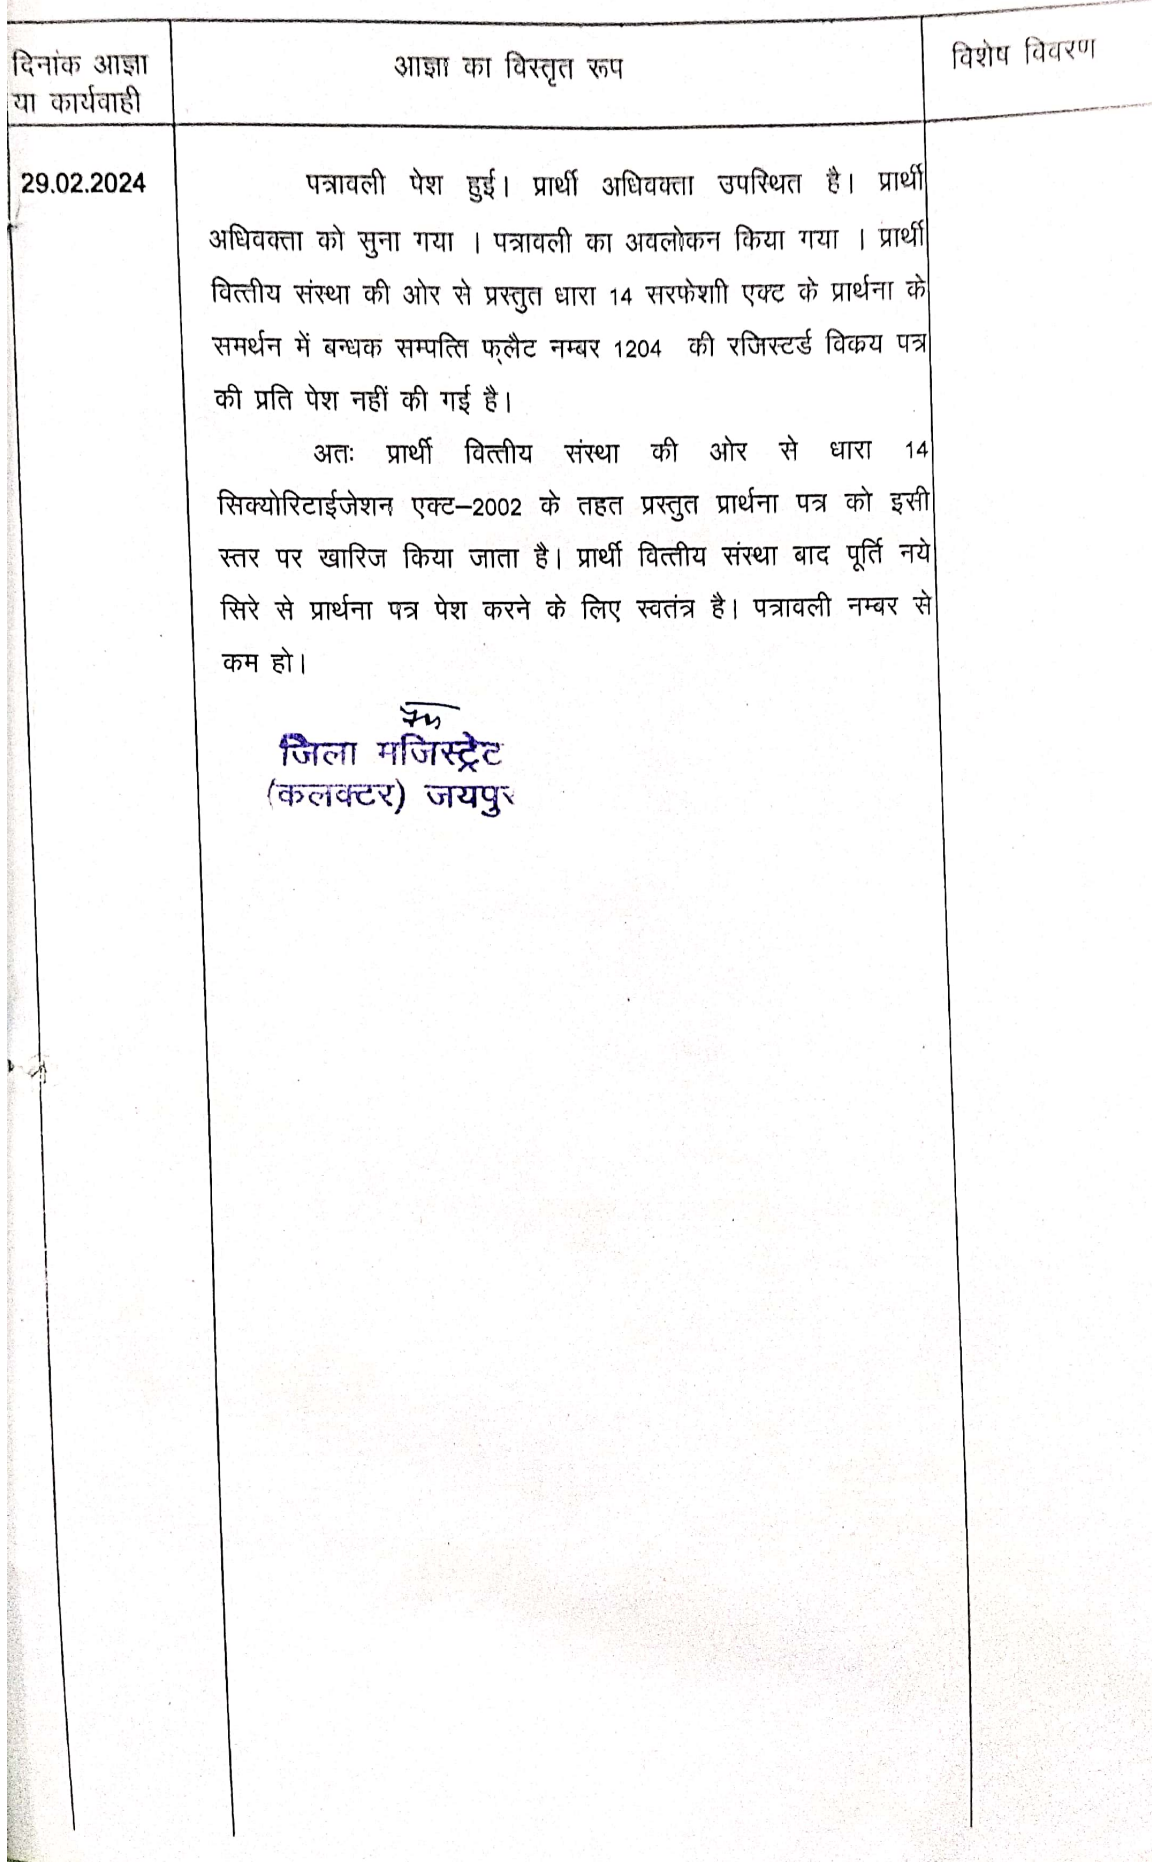 दिनांक आज्ञा
या कार्यवाही
आज्ञा का विस्तृत रूप
विशेष विवरण
29.02.2024
पत्रावली पेश हुई। प्रार्थी अधिवक्ता उपस्थित है। प्रार्थी
अधिवक्ता को सुना गया । पत्रावली का अवलोकन किया गया । प्रार्थी
वित्तीय संस्था की ओर से प्रस्तुत धारा 14 सरफेशाी एक्ट के प्रार्थना के
समर्थन में बन्धक सम्पत्ति फ्लैट नम्बर 1204 की रजिस्टर्ड विकय पत्र
की प्रति पेश नहीं की गई है।
अतः प्रार्थी वित्तीय संस्था की ओर से धारा 14
सिक्योरिटाईजेशन एक्ट–2002 के तहत प्रस्तुत प्रार्थना पत्र को इसी
स्तर पर खारिज किया जाता है। प्रार्थी वित्तीय संस्था बाद पूर्ति नये
सिरे से प्रार्थना पत्र पेश करने के लिए स्वतंत्र है। पत्रावली नम्बर से
कम हो।
जिला मजिस्ट्रेट
(कलक्टर) जयपुर